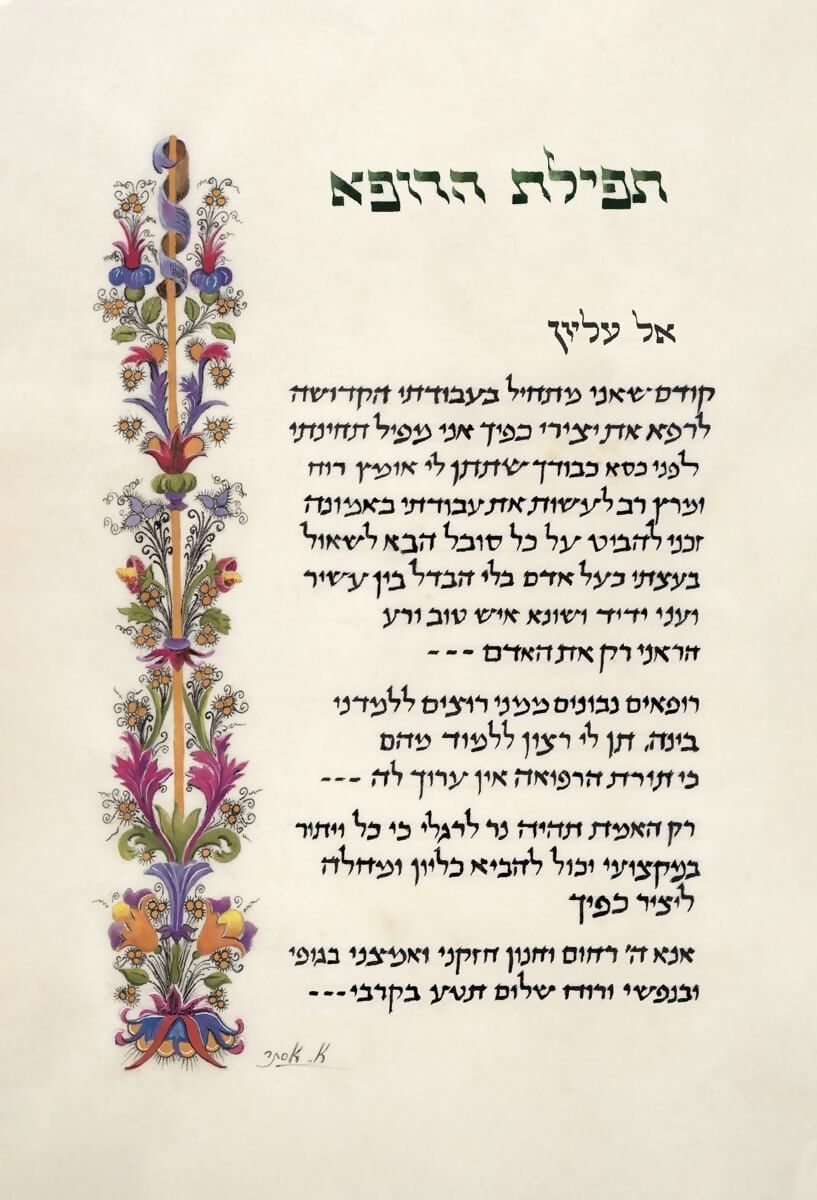 תפילת הרופא
אל עליון
קודם שאני מתחיל בעבודתי הקדושה
לרפא את יצירי כפיך אני מפיל תחינתי
לפני כסא כבודך שתתן לי אומץ רוח
ומרץ רב לעשות את עבודתי באמונה
זכני להביט על כל סובל הבא לשאול
בעצתי כעל אדם בלי הבדל בין עשיר
ועני ידיד ושונא איש טוב ורע
הראני רק את האדם ---
רופאים נבונים ממני רוצים ללמדני
בינה, תן לי רצון ללמוד מהם
כי תורת הרפואה אין ערוך לה ---
רק האמת תהיה נר לרגלי כי כל ויתור
במקצועי יכול להביא כליון ומחלה
ליציר כפיך
אנא ה' רחום וחנון חזקני ואמצני בגופי
ובנפשי ורוח שלום תטע בקרבי---